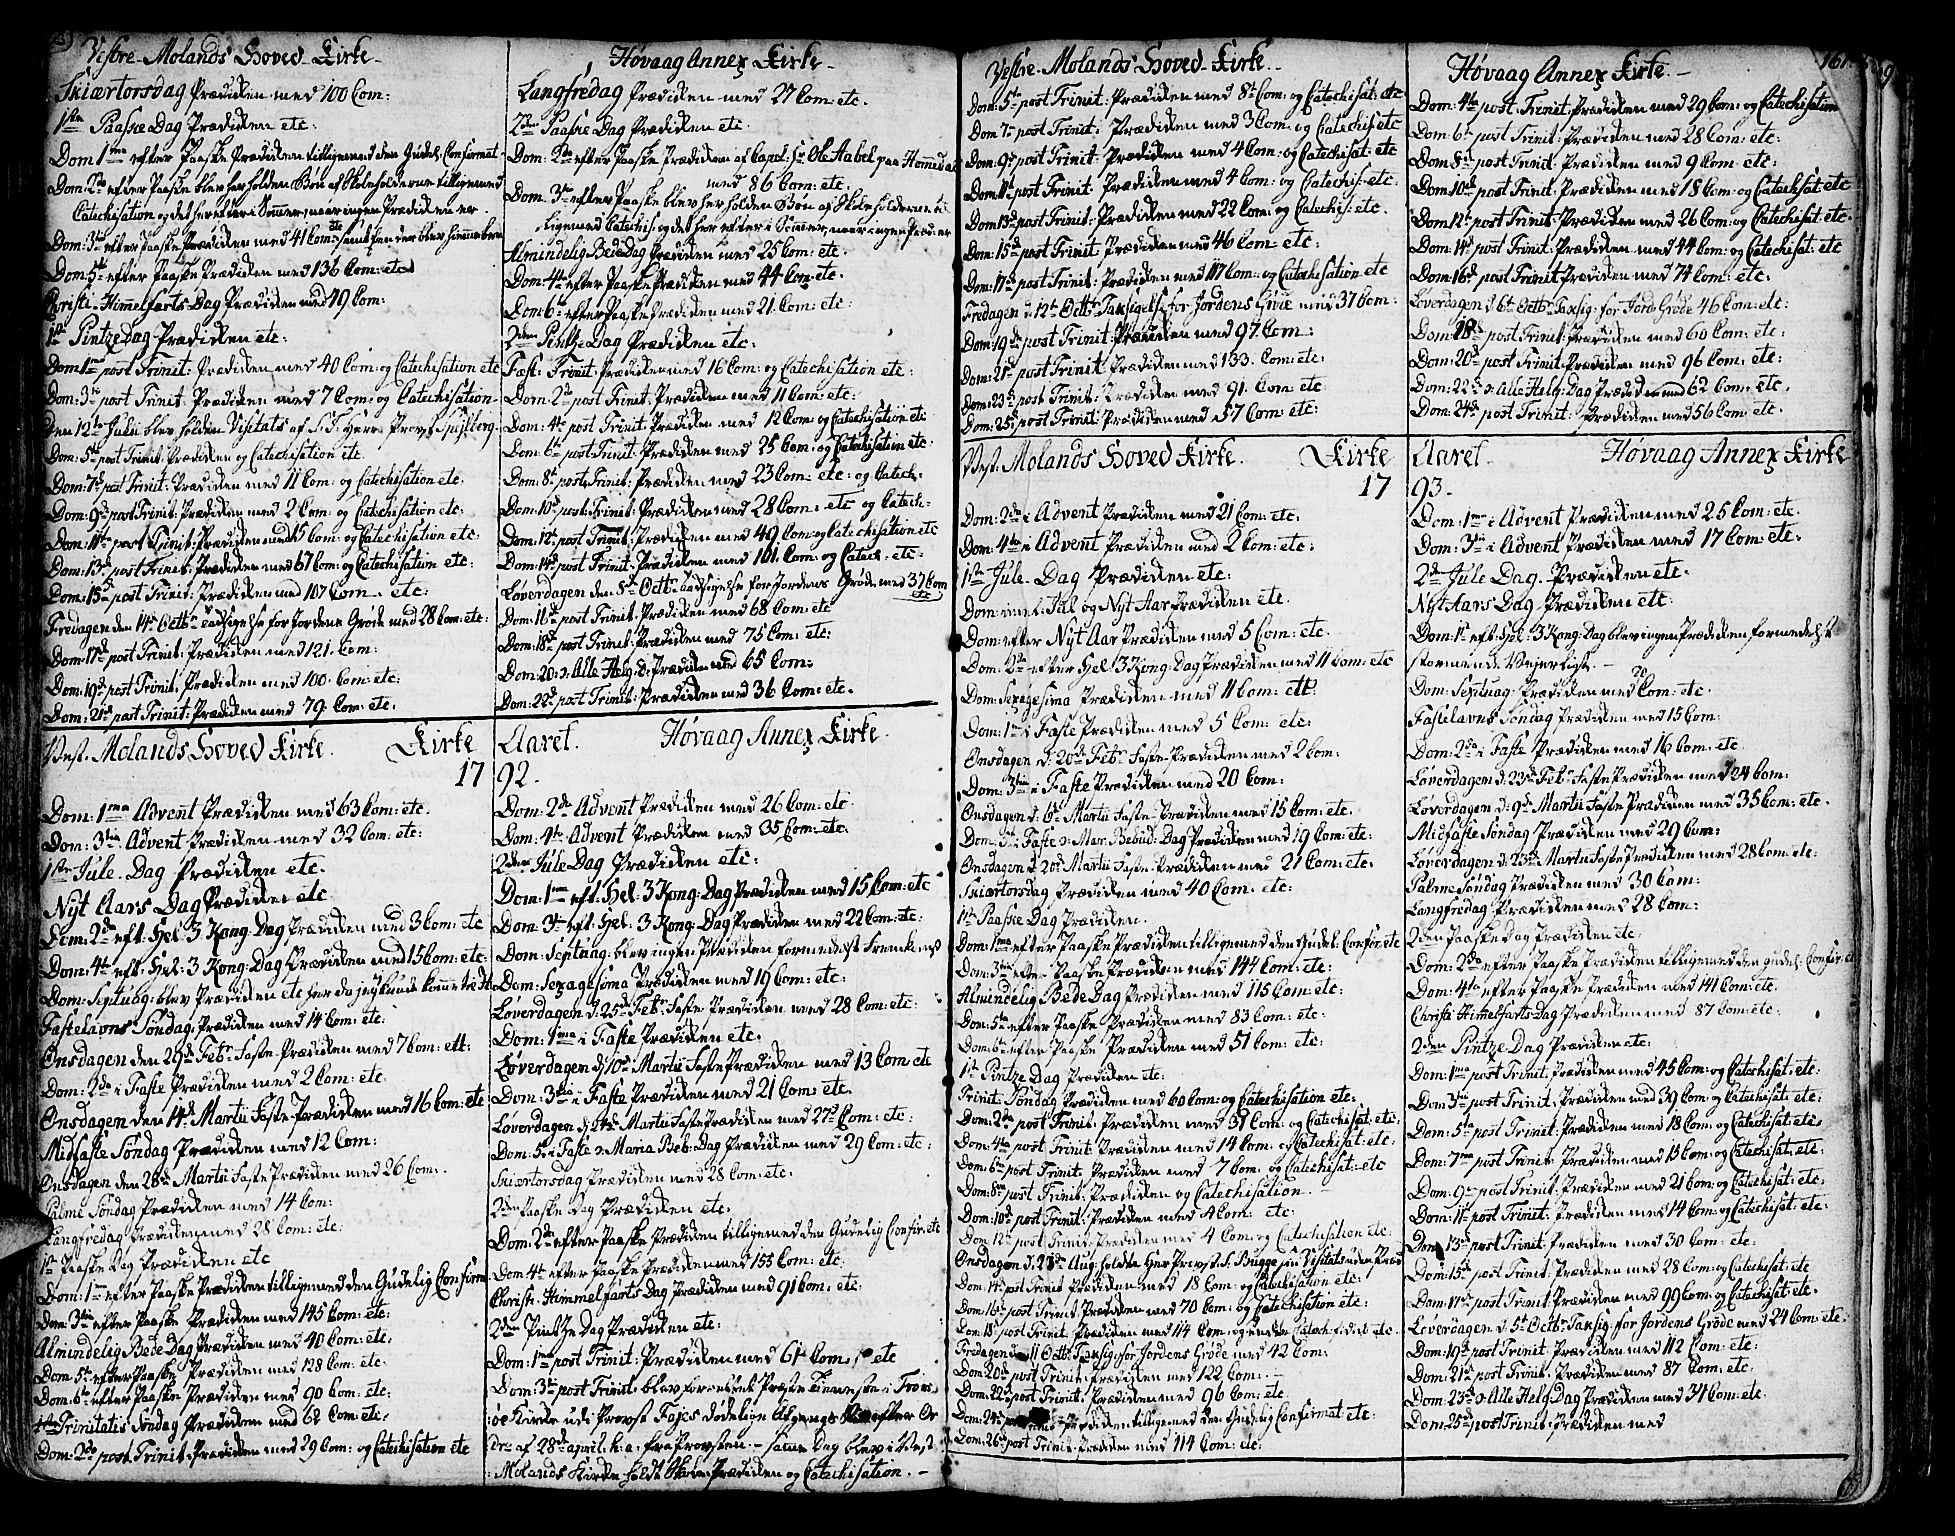 Vestre-Molands Hoved-Kirke-
Skiærtorsdag Prædiken med 100 Com:
1ste Paaske Dag Prædiken etc:
Dom 1ma efter Paaske Prædiken tilligemed den Gudel: Confirmat-
Dom: 2da efter Paaske blev her holden Bøn af Skoleholderne tilligemed
Catechisation og det herefter i Sommer, naar ingen Prædiken er.
Dom: 3tia efter Paaske Prædiken med 41 Com: etc
Dom: 5ta efter Paaske Prædiken med 136 Com: etc
Christi Himmelfarts Dag Prædiken med 49 Com:
1ste Pintze Dag Prædiken etc:
Dom 1ma post Trinit: Prædiken med 40 Com: og Catechisation etc
Dom: 3tia post Trinit: Prædiken med 7 Com: og Catechisation-
Den 12te Julii blev holden Visitats af S.T. Herr Provst Spidberg
Dom: 5ta post Trinit: Prædiken og Catechisation etc.
Dom: 7da post Trinit: Prædiken med 11 Com: og Catechisation etc.
Dom: 9da post Trinit: Prædiken med 2 Com: og Catechisation etc:
Dom: 11te post Trinit: Prædiken med 15 Com: og Catechisation etc:
Dom: 13d post Trinit: Prædiken med 67 Com: og Catechisation etc:
Dom: 15d post Trinit: Prædiken med 107 Com. etc:
Fredagen den 14de Octbr Taksigelse for Jordens Grøde med 28 Com: etc:
Dom: 17d post Trinit: Prædiken med 121. Com:
Dom: 19d post Trinit: Prædiken med 100. Com: etc:
Dom: 21d post Trinit: Prædiken med 79. Com: etc:
Høvaag Annex Kirke-
Langfredag Prædiken med 27 Com: etc.
2den Paaske Dag Prædiken etc.
Dom: 2da efter Paaske Prædiken af Capel: Hr Ole Aabel paa Hommedal
med 86 Com: etc.
Dom: 3tia efter Paaske blev her holden Bøn af Skoleholderne til-
ligemed Catechis: og det her efter i Sommer, naar ingen Præd: er
Almindelig Bede Dag Prædiken med 25 Com: etc
Dom: 4ta efter Paaske Prædiken med 44 Com: etc.
Dom: 6ta efter Paaske Prædiken med 21. Com: etc
2den Pintze Dag Prædiken etc:
Fest: Trinit: Prædiken med 16 Com: og Catechisation etc:
Dom: 2da post Trinit: Prædiken med 11 Com: etc:
Dom: 4ta post Trinit: Prædiken med 12 Com: og Catechisation etc
Dom: 6ta post Trinit: Prædiken med 25 Com: og Catechisation etc:
Dom: 8ta post Trinit: Prædiken med 23 Com: etc: og Catech.
Dom: 10d post Trinit: Prædiken med 28 Com: etc og Catech-
Dom: 12. post Trinit: Prædiken med 49 Com: og Catechisation etc
Dom: 14d post Trinit: Prædiken med 101. Com: og Catech. etc:
Løverdagen den 8de Octbr Taksigelse for Jordens Grøde med 37 Com
etc
Dom: 16d post Trinit: Prædiken med 68 Com:
Dom: 18d post Trinit: Prædiken med 75 Com: etc:
Dom: 20: ɔ: Alle Helg: D: Prædiken med 65 Com:
Dom: 22d post Trinit: Prædiken med 36 Com: etc.
Vest. Molands Hoved Kirke. Kirke Aaret. Høvaag Annex Kirke.
17 92.
Dom: 1ma Advent Prædiken med 63 Com: etc.
Dom: 3tia Advent Prædiken med 32 Com: etc:
1ste Jule-Dag Prædiken etc.
Nyt Aars Dag Prædiken etc
Dom: 2da eft: Hel: 3 Kong: Dag Prædiken med 3 Com: etc
Dom: 4ta eft: Hel: 3 Kong: Dag Prædiken med 15 Com: etc.
Dom: Septuag: blev Prædiken etc her da jeg kunde komme
Fastelavns Søndag: Prædiken med 14 Com: etc:
Onsdagen den 29d Febr: Faste-Prædiken med 7 Com: ett:
Dom: 2da i Faste Prædiken med 2 Com: etc
Onsdagen den 14d Martii Faste Prædiken med 16 Com: etc
Midfaste Søndag Prædiken med 12 Com:
Onsdagen den 28d Martii Faste Prædiken med 26 Com:.
Palme Søndag Prædiken med 14 Com:
Langfredag Prædiken med 28 Com: etc:
1ste Paaske Dag Prædiken etc
Dom: 1ma efter Paaske Prædiken tilligemed den Gudelig Confirm
Dom: 3tia efter Paaske Prædiken med 145 Com: etc:
Almindelig Bede Dag Prædiken med 40 Com: etc:
Dom: 5ta efter Paaske Prædiken med 128 Com: etc
Dom: 6ta efter Paaske Prædiken med 90 Com: etc:
Trinitatis Søndag Prædiken med 62 Com: etc:
Dom: 2da post Trinit: Prædiken med 29 Com: og Catechisation etc
Dom: 2da Advent Prædiken med 26 Com: etc:
Dom: 4ta Advent Prædiken med 35 Com: etc.
2den Jule Dag Prædiken etc:
Dom: 1ma eft: Hel 3 Kong: Dag Prædiken med 15 Com: etc
Dom: 3tia eft: Hel. 3 Kong: Dag Prædiken med 22 Com: etc:
Dom: Septuag: blev ingen Prædiken formedelst
Dom: Sexagesima Prædiken med 19 Com: etc:
Løverdagen d: 25d Febr: Faste-Prædiken med 28 Com: etc:
Dom: 1ma i Faste Prædiken etc.
Løverdagen d: 10d Martii Faste Prædiken med 13 Com etc
Dom: 3tia i Faste Prædiken med 21 Com: etc.
Løverdagen d: 24d Martii Faste Prædiken med 27d Com: etc:
Dom: 5. i Faste ɔ: Maria Beb: Dag Prædiken med 29 Com: etc:
Skiærtorsdag Prædiken med 28 Com: etc:
2den Paaske Dag Prædiken etc:
Dom: 2da efter Paaske Prædiken tilligemed den Gudelig Confir: etc
Dom: 4ta efter Paaske Prædiken med 153 Com: etc:
Christi Himmelfarts Dag Prædiken med 91 Com: etc:
2den Pintze Dag Prædiken etc:
Dom: 1ma post Trinit: Prædiken med 61 Com: etc
Dom: 3tia post Trinit: blev forrettet Præste Tieneste i Trom-
øe Kirke udi Provst Fajes dødelige Afgang efter Or-
dre af 28de april: h: a: fra Provsten.- samme Dag blev i Vest
Molands Kirke holdt Skole Prædiken og Catechisation.-
Vestre-Molands Hoved-Kirke.-
Dom: 5ta post Trinit: Prædiken med 8te Com: og Catechisat: etc
Dom 7da post Trinit: Prædiken med 3 Com: og Catechis: etc
Dom: 9d post Trinit: Prædiken med 4 Com: og Catechisat: etc
Dom: 11te post Trinit: Prædiken med 4 Com: og Catechis: etc.
Dom 13d post Trinit: Prædiken med 22 Com: og Catechis: etc.
Dom: 15d post Trinit: Prædiken med 46 Com: etc:
Dom: 17d post Trinit: Prædiken med 117 Com: og Catechisation etc
Fredagen d: 12te Octbr Taksigelse for Jordens Grøde med 37 Com:
Dom: 19d post Trinit: Prædiken med 97. Com:
Dom: 21d post Trinit: Prædiken med 133. Com: etc:
Dom: 23d post Trinit: Prædiken med 91. Com: etc:
Dom: 25d post Trinit: Prædiken med 57 Com: etc:
Høvaag Annex Kirke.- 161.
Dom: 4ta post Trinit: Prædiken med 29 Com: og Catechisation
Dom: 6ta post Trinit: Prædiken med 28 Com: etc:
Dom: 8da post Trinit: Prædiken med 9 Com: etc:
Dom: 10d post Trinit: Prædiken med 18 Com: og Catechisat: etc
Dom: 12te post Trinit: Prædiken med 26 Com: og Catechisat: etc.
Dom: 14d post Trinit: Prædiken med 44 Com: og Catechisat: etc
Dom: 16d post Trinit: Prædiken med 74 Com: etc:
Løverdagen d: 6te Octbr: Taksig: for Jord: Grøde 46 Com: etc:
Dom: 18d post Trinit: Prædiken med 60 Com: etc:
Dom: 20d post Trinit: Prædiken med 96 Com: etc:
Dom: 22d ɔ: Alle Helg: Dag Prædiken med 62 Com: etc.
Dom: 24d post Trinit: Prædiken med 56 Com: etc:
Vest. Molands Hoved Kirke. Kirke Aaret. Høvaag Annex Kirke
17 93.
Dom: 2da i Advent Prædiken med 21 Com: etc.
Dom: 4ta i Advent Prædiken med 2 Com: etc:
1ste Jule-Dag Prædiken etc:
Dom: imel: Jul og Nyt Aar Prædiken etc.
Dom: efter Nyt Aar Prædiken med 5 Com: etc.
Dom: 2da efter Hel: 3 Kong: Dag Prædiken med 11 Com: etc
Dom: Sexagesima Prædiken med 11 Com: ett.
Dom: 1ma i Faste Prædiken med 5 Com: etc:
Onsdagen d: 20de Febr: Faste-Prædiken med 2 Com:
Dom: 3tia i Faste Prædiken med 20 Com:
Onsdagen d: 6te Martii Faste-Prædiken med 15 Com: etc:
Dom: 5ta i Faste ɔ: Mar. Bebud: Dag Prædiken med 19 Com: etc:
Onsdagen d. 20d Martii Faste-Prædiken med 21 Com: etc:
Skiærtorsdag Prædiken med 40 Com: etc:
1ste Paaske Dag Prædiken.
Dom: 1ma efter Paaske Prædiken tilligemed den Gudel: Confir: etc
Dom: 3tia efter Paaske Prædiken med 144 Com: etc:
Almindelig Bede Dag Prædiken med 115 Com: etc:
Dom: 5ta efter Paaske Prædiken med 83 Com: etc:
Dom: 6ta efter Paaske Prædiken med 51 Com: etc:
1ste Pintze Dag Prædiken etc:
Trinit: Søndag Prædiken med 60 Com: og Catechisation etc:
Dom: 2da post Trinit: Prædiken med 31 Com: og Catechisat: etc:
Dom: 4ta post Trinit: Prædiken med 14 Com: og Catechisat: etc:
Dom: 6ta post Trinit: Prædiken med 7 Com: og Catechisat: etc
Dom: 8va post Trinit: Prædiken og Catechisation.-
Dom: 10d post Trinit: Prædiken med 4 Com: etc:
Dom 12te post Trinit: Prædiken med 4 Com: og Catechisation etc:
Onsdagen d: 28de Aug: holdte Herr Provst S: Bugge sin Visitats
Dom: 14de post Trinit: Prædiken med 18 Com: og Catechisation etc
Dom: 16te post Trinit: Prædiken med 70 Com: og Catechisation etc:
Dom: 18d post Trinit: Prædiken med 114 Com: og etc.
Fredagen d: 11 Octbr: Taksig: for Jordens Grøde med 42 Com:
Dom: 20d post Trinit: Prædiken med 122 Com:-
Dom: 22d post Trinit: Prædiken med 96 Com: etc:
Dom: 24d post Trinit: Prædiken tilligemed den Gudelig Confirmat: etc:
Dom: 26d post Trinit: Prædiken med 114 Com: etc:
Dom: 1ma i Advent Prædiken med 25 Com: etc.
Dom: 3tia i Advent Prædiken med 17 Com: etc:
2den Jule Dag. Prædiken etc.
Nyt Aars Dag Prædiken etc:
Dom: 1ma eft: Hel: 3 Kong: Dag blev ingen Prædiken formedelst
stormende Vejerligt.-
Dom: Septuag: Prædiken med 20 Com: etc.
Fastelavns Søndag Prædiken med 15 Com:
Dom: 2da i Faste Prædiken med 16 Com: etc.
Løverdagen d: 23d Febr: Faste Prædiken med 24 Com:
Løverdagen d: 9d Martii Faste Prædiken med 35 Com: etc.
Midfaste Søndag Prædiken med 29 Com:
Løverdagen d: 23d Martii Faste Prædiken med 28 Com: etc:
Palme Søndag Prædiken med 30 Com:
Langfredag Prædiken med 28 Com:
2den Paaske Dag Prædiken etc:
Dom: 2da efter Paaske Prædiken tilligemed den gudel: Confir: etc
Dom: 4ta efter Paaske Prædiken med 141 Com: etc:
Christi Himmelfarts Dag Prædiken med 87 Com: etc:
2den Pintze Dag Prædiken etc:
Dom: 1ma post Trinit: Prædiken med 45 Com: og Catechisat: etc:
Dom 3tia post Trinit: Prædiken med 39 Com: og Catechisat: etc:
Dom: 5ta post Trinit: Prædiken med 18 Com: og Catechisat: etc:
Dom: 7ma post Trinit: Prædiken med 13 Com: og Catechisat: etc:
Dom: 9na post Trinit: Prædiken med 21 Com: og Catechisat: etc:
Dom: 11te post Trinit: Prædiken med 14 Com: og Catechisat: etc:
Dom: 13d post Trinit: Prædiken med 30 Com: etc:
Dom: 15d post Trinit: Prædiken med 28 Com: og Catechisat: etc:
Dom: 17d post Trinit: Prædiken med 99 Com: og Catechisat: etc:
Løverdagen d: 5te Octbr: Taksig: for Jordens Grøde med 24 Com: etc.
Dom: 19d post Trinit: Prædiken med 112 Com: etc:
Dom: 21d post Trinit: Prædiken med 87 Com: etc:
Dom: 23d ɔ: Alle Helg: Dag Prædiken med 34 Com: etc:
Dom: 25d post Trinit: Prædiken med